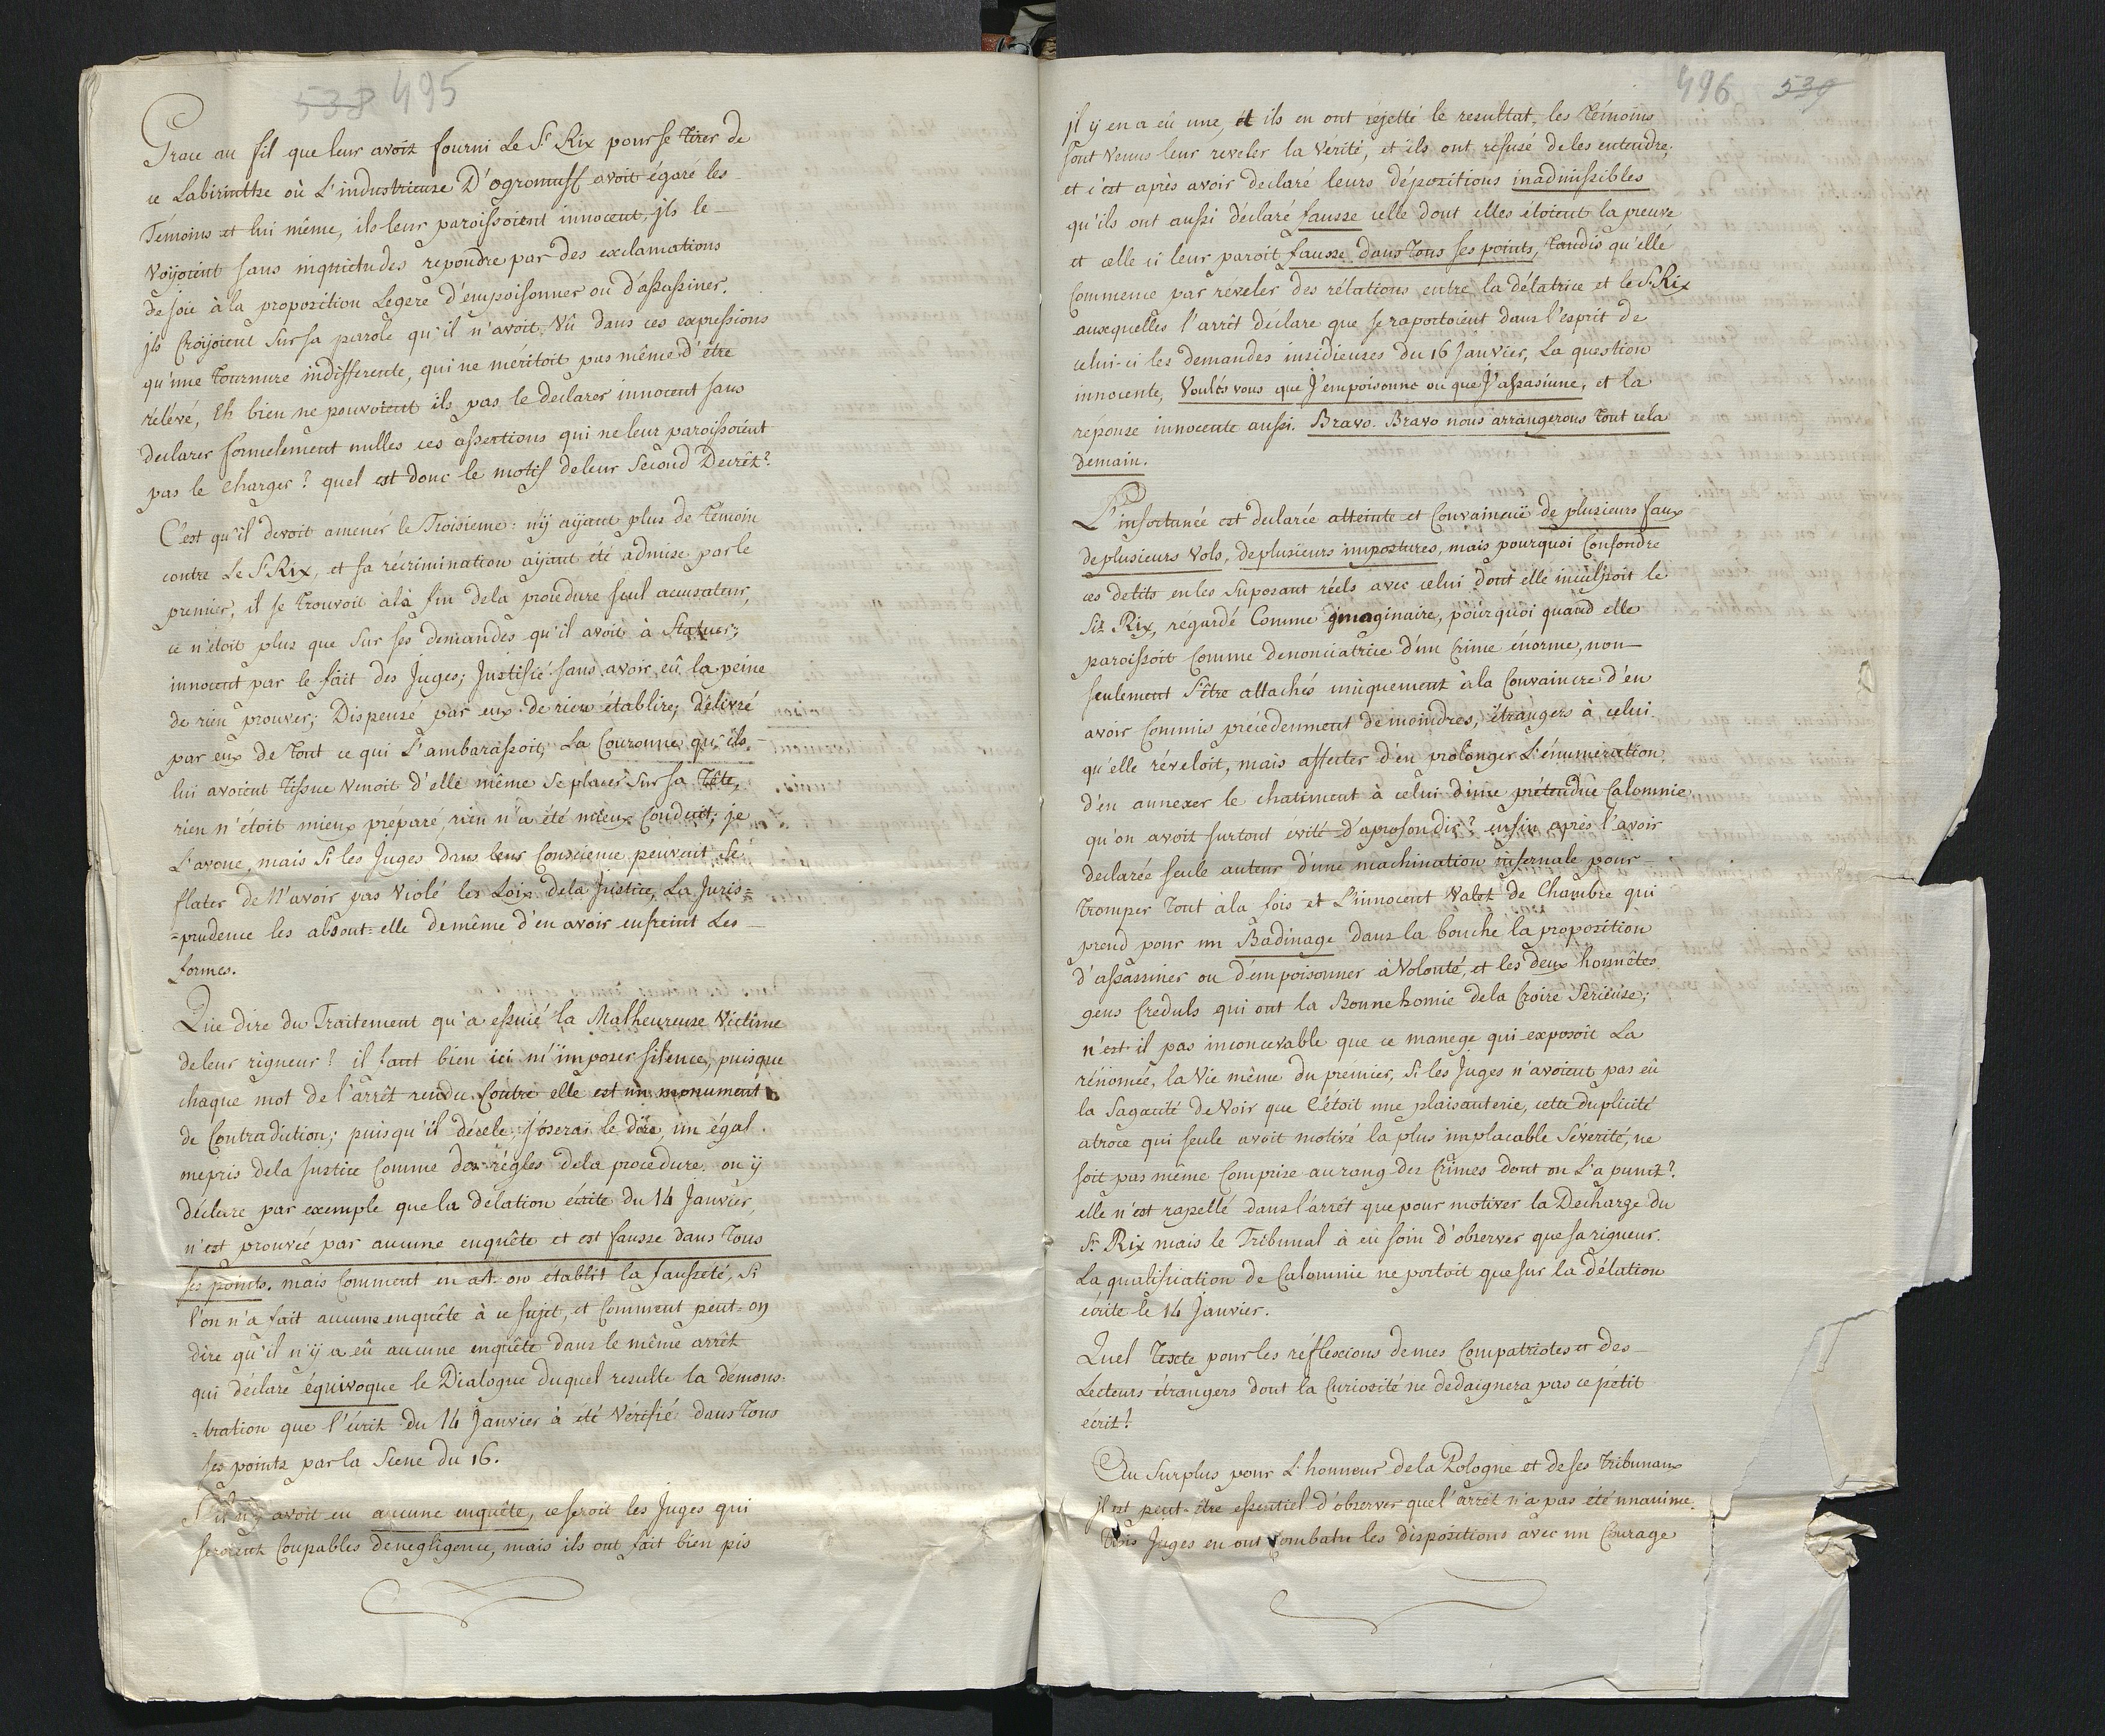 538 495
Grace au fil que leur avoit fourni Le Sr Rix pour se tirer de
ce Labirinthe où L'industrieuse D'ogrumuff avoit égaré les
Témoins et lui même, ils leur paroissoient innocent, jls le
voÿoient sans inquietudes repondre par des exclamations
de joie à la proposition Legere d'empoisonner ou d'assassiner.
jls Croÿoient Sur sa parole qu'il n'avoit Vû dans ces expressions
qu'une tournure indifferente, qui ne méritoit pas même d'être
rélévé, Eh bien ne pouvoient ils pas le declarer innocent sans
declarer formelement nulles ces assertions qui ne leur paroissoient
pas le charger? quel est donc le motif de leur Second Decrêt?
C'est qu'il devoit amener le Troisieme: n'ÿ aÿant plus de témoin
contre Le Sr Rix, et sa récrimination aÿant été admise par le
premier, il se trouvoit à la fin de la procedure seul accusateur,
ce n'étoit plus que sur ses demandes qu'il avoit à Statuer;
innocent par le fait des Juges; Justifié sans avoir eû la peine
de rien prouver; Dispensé par eux de rien établire; délivré
par eux de tout ce qui L'ambarassoit, La Couronne qu'ils
lui avoient tissue venoit d'elle même se placer sur sa Tête,
rien n'étoit mieux préparé, rien n'a été mieux Conduit, je
L'avoue, mais Si les Juges dans leur Conscience peuvent se
flater de N'avoir pas Violé les Loix de la Justice, La Juris=
=prudence les absout=elle de même d'en avoir enfreint Les
formes.
Que dire du Traitement qu'a essuié la Malheureuse Victime
de leur rigueur? il faut bien ici m'imposer silence, puisque
chaque mot de l'arrêt rendu Contre elle est un monument
de Contradiction; puisqu'il décele, j'oserai le dire, un égal
mepris de la Justice Comme des régles de la procedure. on ÿ
déclare par exemple que la délation écrite du 14 Janvier,
n'est prouvée par aucune enquête et est fausse dans tous
ses points. mais Comment en a-t-on établit la fausseté, si
l'on n'a fait aucune enquête à ce sujet, et Comment peut=on
dire qu'il n'ÿ a eû aucune enquête dans le même arrêt
qui déclare équivoque le Dialogue duquel resulte la démons=
=tration que l'écrit du 14 Janvier à été Vérifié dans tous
ses points par la Scene du 16.
avoit eu aucune enquête, ce seroit les Juges qui
seroient Coupables de negligence, mais ils ont fait bien pis
496 539
jl ÿ en a eû une, et ils en ont rejetté le resultat, les témoins
sont venus leur reveler la vérité, et ils ont réfusé de les entendre;
et c'est après avoir declaré leurs dépositions inadmissibles
qu'ils ont aussi déclaré fausse celle dont elles étoient la preuve
et celle ci leur paroit fausse dans tous ses points, tandis qu'elle
Commence par réveler des rélations entre la délatrice et le Sr Rix
auxquelles l'arrêt déclare que se raportoient dans l'esprit de
celui-ci les demandes insidieuses du 16 Janvier, La question
innocente, Voulés vous que J'empoisonne ou que J'assasinne, et la
réponse innocente aussi. Bravo. Bravo nous arrangerons tout cela
demain.
L'infortunée est declarée atteinte et Convaincuë de plusieurs faux
de plusieurs vols, de plusieurs impostures, mais pourquoi Confondre
ces delits en les Suposant réels avec celui dont elle inculpoit le
Sr Rix, régardé Comme imaginaire, pourquoi quand elle
paroissoit Comme denonciatrice d'un Crime énorme, non
seulement s'être attachés uniquement à la Convaincre d'en
avoir Commis précedenment de moindres, étrangers à celui
qu'elle réveloit, mais affecter d'en prolonger L'énumération,
d'en annexer le chatiment à celui d'une prétenduë Calomnie
qu'on avoit surtout évité d'aprofondir? enfin après l'avoir
declarée seule auteur d'une machination infernale pour
tromper tout à la fois et L'innocent Valet de Chambre qui
prend pour un Badinage dans la bouche la proposition
d'assassiner ou d'empoisonner à Volonté, et les deux honnêtes
gens Creduls qui ont la Bonnehomie de la Croire Sérieuse;
n'est-il pas inconcevable que ce manege qui exposoit La
rénomée, la Vie même du premier, si les Juges n'avoient pas eû
la Sagacité de Voir que C'étoit une plaisanterie, cette duplicité
atroce qui seule avoit motivé la plus implacable Séverité, ne
soit pas même Comprise au rang des Crimes dont on L'a punit?
elle n'est rapellé dans l'arrêt que pour motiver la Decharge du
Sr Rix mais le Tribunal à eû soin d'observer que sa rigueur.
La qualification de Calomnie ne portoit que sur la délation
écrite le 14 Janvier.
Quel Texte pour les réflexions de mes Compatriotes et des
Lecteurs étrangers dont la Curiosité ne dedaignera pas ce pétit
écrit!
Au Surplus pour L'honneur de la Pologne et de ses Tribunaux
jl est peut-être essentiel d'observer que l'arrêt n'a pas été unanime.
trois Juges en ont Combatu les dispositions avec un Courage